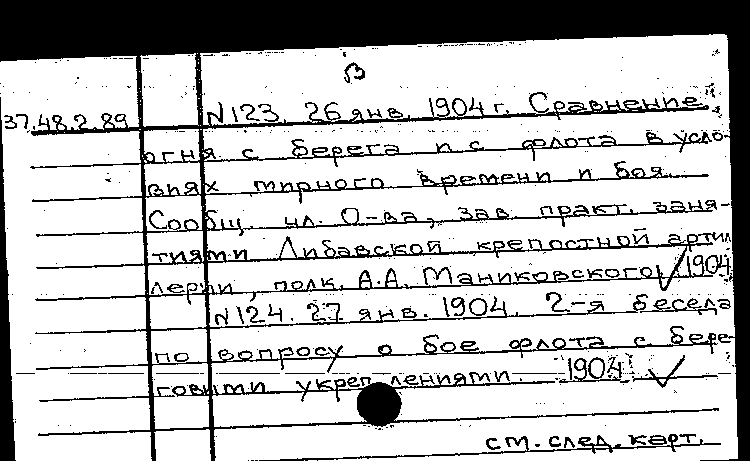 В
37.48.2.89 № 123. 26 янв. 1904 г. Сравнение
огня с берега и с флота в усло-
виях мирного времени и боя.
Сообщ. чл. О-ва, зав. практ. заня-
тиями Либавской крепостной артил
лерии, полк. А.А. Маниковского, 1904
№ 124. 27 янв. 1904. 2-я беседа
по вопросу о бое флота с бере-
говыми укреплениями. 1904
см. след. карт.